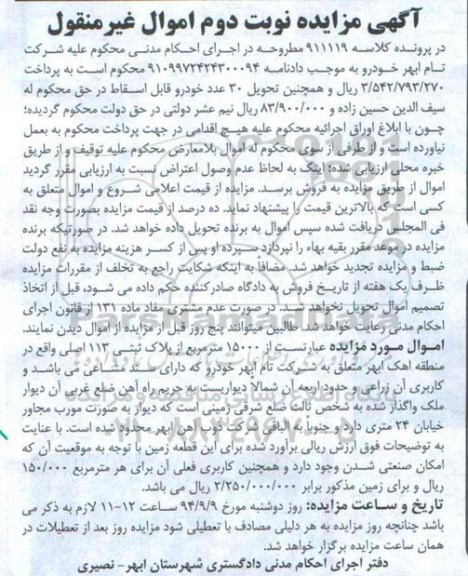 آگهی مزایده نوبت دوم اموال غیرمنقول
در پرونده کلاسه ۹۱۱۱۱۹ مطروحه در اجرای احکام مدنی محکوم علیه شرکت
تام ابهر خودرو به موجب دادنامه ۹۱۰۹۹۷۲۴۲۴۳۰۰۰۹۴ محکوم است به پرداخت
۳/۵۴۲/۷۹۳/۲۷۰ ریال و همچنین تحویل ۳۰ عدد خودرو قابل اسقاط در حق محکوم له
سیف الدین حسین زاده و ۸۳/۹۰۰/۰۰۰ ریال نیم عشر دولتی در حق دولت محکوم گردیده؛
چون با ابلاغ اوراق اجرائیه محکوم علیه هیچ اقدامی در جهت پرداخت محکوم به بعمل
نیاورده است و از طرفی از سوی محکوم له اموال بلامعارض محکوم علیه توقیف و از طریق
خبره محلی ارزیابی شده؛ اینک به لحاظ عدم وصول اعتراض نسبت به ارزیابی مقرر گردید
اموال از طریق مزایده به فروش برسد. مزایده از قیمت اعلامی شروع و اموال متعلق به
کسی است که بالاترین قیمت را پیشنهاد نماید. ده درصد از قیمت مزایده بصورت وجه نقد
فی المجلس دریافت شده سپس اموال به برنده تحویل داده خواهد شد. در صورتیکه برنده
مزایده در موعد مقرر بقیه بهاء را نپردازد سپرده او پس از کسر هزینه مزایده به نفع دولت
ضبط و مزایده تجدید خواهد شد. مضافاً به اینکه شکایت راجع به تخلف از مقررات مزایده
ظرف یک هفته از تاریخ فروش به دادگاه صادرکننده حکم داده می شود، قبل از اتخاذ
تصمیم اموال تحویل نخواهد شد. در صورت عدم مشتری مفاد ماده ۱۳۱ از قانون اجرای
احکام مدنی رعایت خواهد شد. طالبین میتوانند پنج روز قبل از مزایده از اموال دیدن نمایند.
اموال مورد مزایده عبارتست از ۱۵۰۰۰ مترمربع از پلاک ثبتی ۱۱۳ اصلی واقع در
منطقه اهک ابهر متعلق به شرکت تام ابهر خودرو که دارای سند مشاعی می باشد و
کاربری آن زراعی و حدود اربعه آن شمالا دیواریست به حریم راه آهن ضلع غربی آن دیوار
ملک واگذار شده به شخص ثالث ضلع شرقی زمینی است که دیوار به صورت مورب مجاور
خیابان ۲۴ متری دارد و جنوبا به الباقی شرکت ذوب آهن ابهر محدود شده است. با عنایت
به توضیحات فوق ارزش ریالی برآورد شده برای این قطعه زمین با توجه به موقعیت آن که
امکان صنعتی شدن وجود دارد و همچنین کاربری فعلی آن برای هر مترمربع ۱۵۰/۰۰۰
ریال و برای زمین مذکور برابر ۲/۲۵۰/۰۰۰/۰۰۰ ریال می باشد.
تاریخ و ساعت مزایده: روز دوشنبه مورخ ۹۴/۹/۹ ساعت ۱۲-۱۱ لازم به ذکر می
باشد چنانچه روز مزایده به هر دلیلی مصادف با تعطیلی شود مزایده روز بعد از تعطیلات در
همان ساعت مزایده برگزار خواهد شد.
دفتر اجرای احکام مدنی دادگستری شهرستان ابهر- نصیری